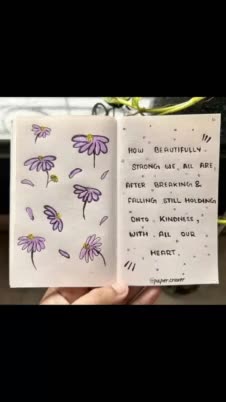 HOW BEAUTIFULLY
STRONG WE ALL ARE,
AFTER BREAKING &
FALLING STILL HOLDING
ONTO KINDNESS,
WITH ALL OUR
HEART.